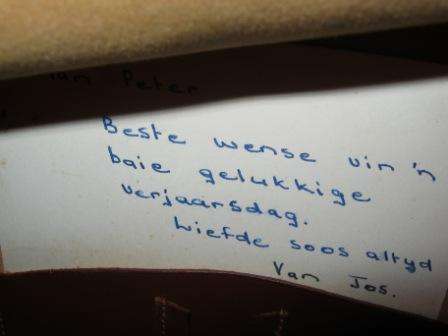 aan Peter
Beste wense vin 'n
baie gelukkige
verjaarsdag.
Liefde soos altyd
Van Jos.